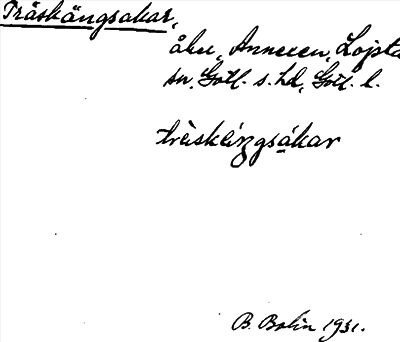 Träskängsakar,
åker, Annexen, Lojsta
sn, Gotl. s. hd, Gotl. l.
trèiskèiŋgsákar
B. Bolin 1931.